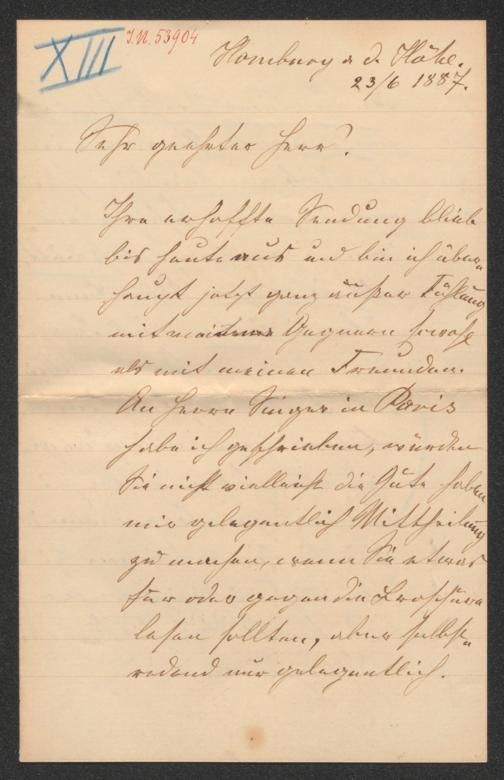 XIII
I.N. 53904
Homburg v. d. Höhe.
23/6 1887.
Sehr geehrter Herr!
Ihre erhoffte Sendung blieb
bis heute aus und bin ich über-
haupt jetzt ganz außer Fühlung
mit meinen Gegnern sowohl
als mit meinen Freunden.
An Herrn Singer in Paris
habe ich geschrieben, würden
Sie nicht vielleicht die Güte haben
mir gelegentlich Mittheilung
zu machen, wenn Sie etwas
für oder gegen die Broschüre
lesen sollten, aber selbst-
redend nur gelegentlich.